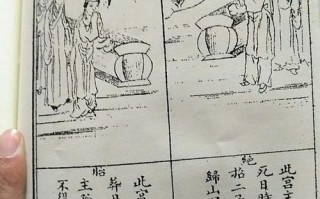 絕
此宮主
死日時
抬二子
歸山
胎
此宮
葬日
主
不得